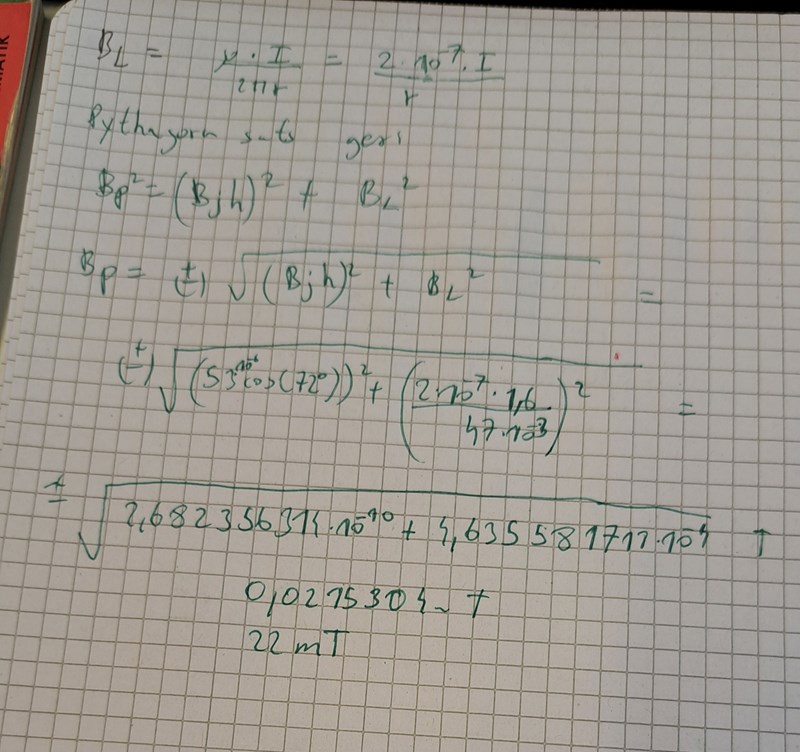 B_L = μ · I / 2πr = 2 · 10^-7 · I / r
Pythagora sats ger:
B_p^2 = (B_jh)^2 + B_L^2
B_p = (±) √((B_jh)^2 + B_L^2) =
(±) √((53·10^-6 cos(72°))^2 + (2·10^-7 · 1,6 / 47·10^-3)^2) =
± √(2,682356314·10^-10 + 4,635581711·10^-4) T
0,0215304~ T
22 mT